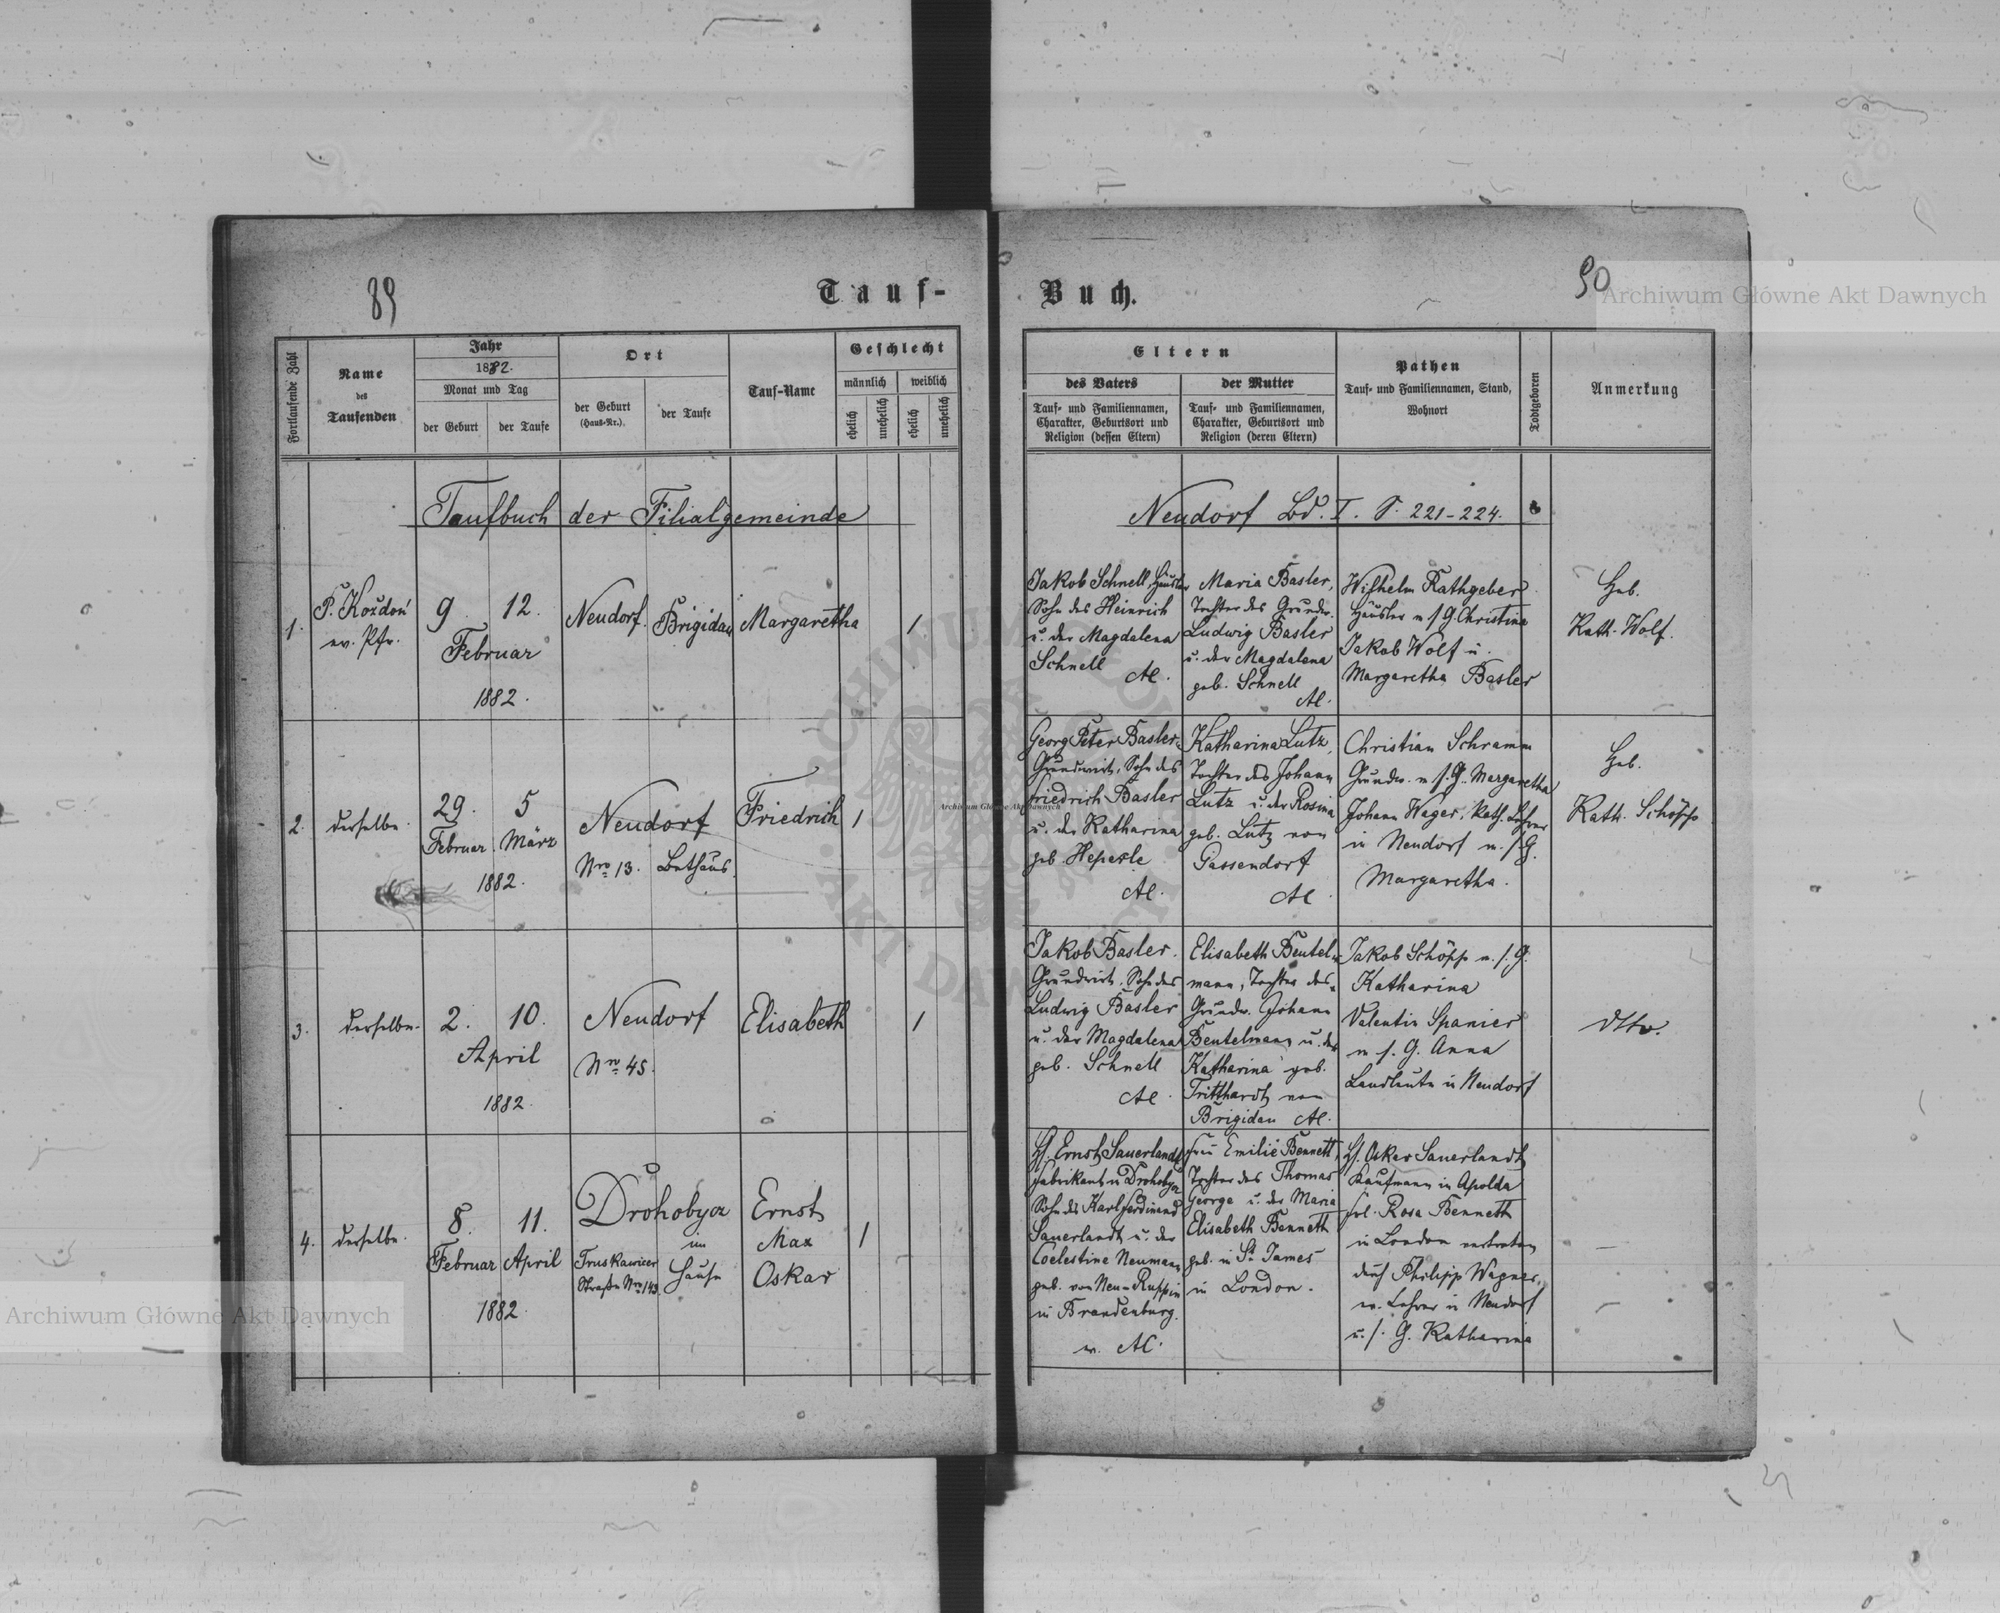 89
Tauf-
Buch.
90
Fortlaufende Zahl
Name
des
Taufenden
Jahr
1882.
Monat und Tag
der Geburt
der Taufe
Ort
der Geburt
(Haus-Nr.)
der Taufe
Tauf-Name
Geschlecht
männlich
weiblich
ehelich
unehelich
ehelich
unehelich
Eltern
des Vaters
Tauf- und Familiennamen,
Charakter, Geburtsort und
Religion (dessen Eltern)
der Mutter
Tauf- und Familiennamen,
Charakter, Geburtsort und
Religion (deren Eltern)
Pathen
Tauf- und Familiennamen, Stand,
Wohnort
Todtgeboren
Anmerkung
Taufbuch der Filialgemeinde
Neudorf Bd. I. S. 221-224.
1.
P. Koždoń
ev. Pfr.
9 12.
Februar
1882.
Neudorf.
Brigidau
Margaretha
1
Jakob Schnell, Häusler
Sohn des Heinrich
u. der Magdalena
Schnell
AC.
Maria Basler,
Tochter des Grundw.
Ludwig Basler
u. der Magdalena
geb. Schnell
AC.
Wilhelm Rathgeber
Häusler m s/G. Christina
Jakob Wolf u.
Margaretha Basler
Heb.
Kath. Wolf.
2.
derselbe.
29. 5
Februar. März
1882.
Neudorf
Nro 13.
Bethaus.
Friedrich
1
Georg Peter Basler,
Grundwirt, Sohn des
Friedrich Basler
u. der Katharina
geb. Heperle
AC.
Katharina Lutz,
Tochter des Johann
Lutz u. der Rosina
geb. Lutz von
Gassendorf
AC.
Christian Schramm
Grundw. m s/G. Margaretha
Johann Wager, kath. Lehrer
in Neudorf m. s/G.
Margaretha.
Heb.
Kath. Schöpp
3.
derselbe.
2. 10.
April
1882.
Neudorf
Nro 45.
Elisabeth
1
Jakob Basler.
Grundwirt, Sohn des
Ludwig Basler
u. der Magdalena
geb. Schnell
AC.
Elisabeth Beutel-
mann, Tochter des
Grundw. Johann
Beutelmann u. der
Katharina geb.
Tritthardt von
Brigidau AC.
Jakob Schöpp m. s. G.
Katharina
Valentin Spanier
m s. G. Anna
Landleute in Neudorf
dtto.
4.
derselbe.
8. 11.
Februar April
1882
Drohobycz
Truskawicer
Straße Nro 143.
im
Hause
Ernst
Max
Oskar
1
H. Ernst Sauerlandt
Fabrikant in Drohobycz
Sohn des Karl Ferdinand
Sauerlandt u. der
Coelestine Neumann
geb. von Neu-Ruppin
in Brandenburg.
ev. AC.
Frau Emilie Bennett,
Tochter des Thomas
George u. der Maria
Elisabeth Bennett
geb. in St. James
in London.
H. Oskar Sauerlandt,
Kaufmann in Apolda
Frl. Rosa Bennett
in London vertreten
durch Philipp Wagner,
ev. Lehrer in Neudorf
u. s. G. Katharina
—
Archiwum Główne Akt Dawnych
Archiwum Główne Akt Dawnych
Archiwum Główne Akt Dawnych